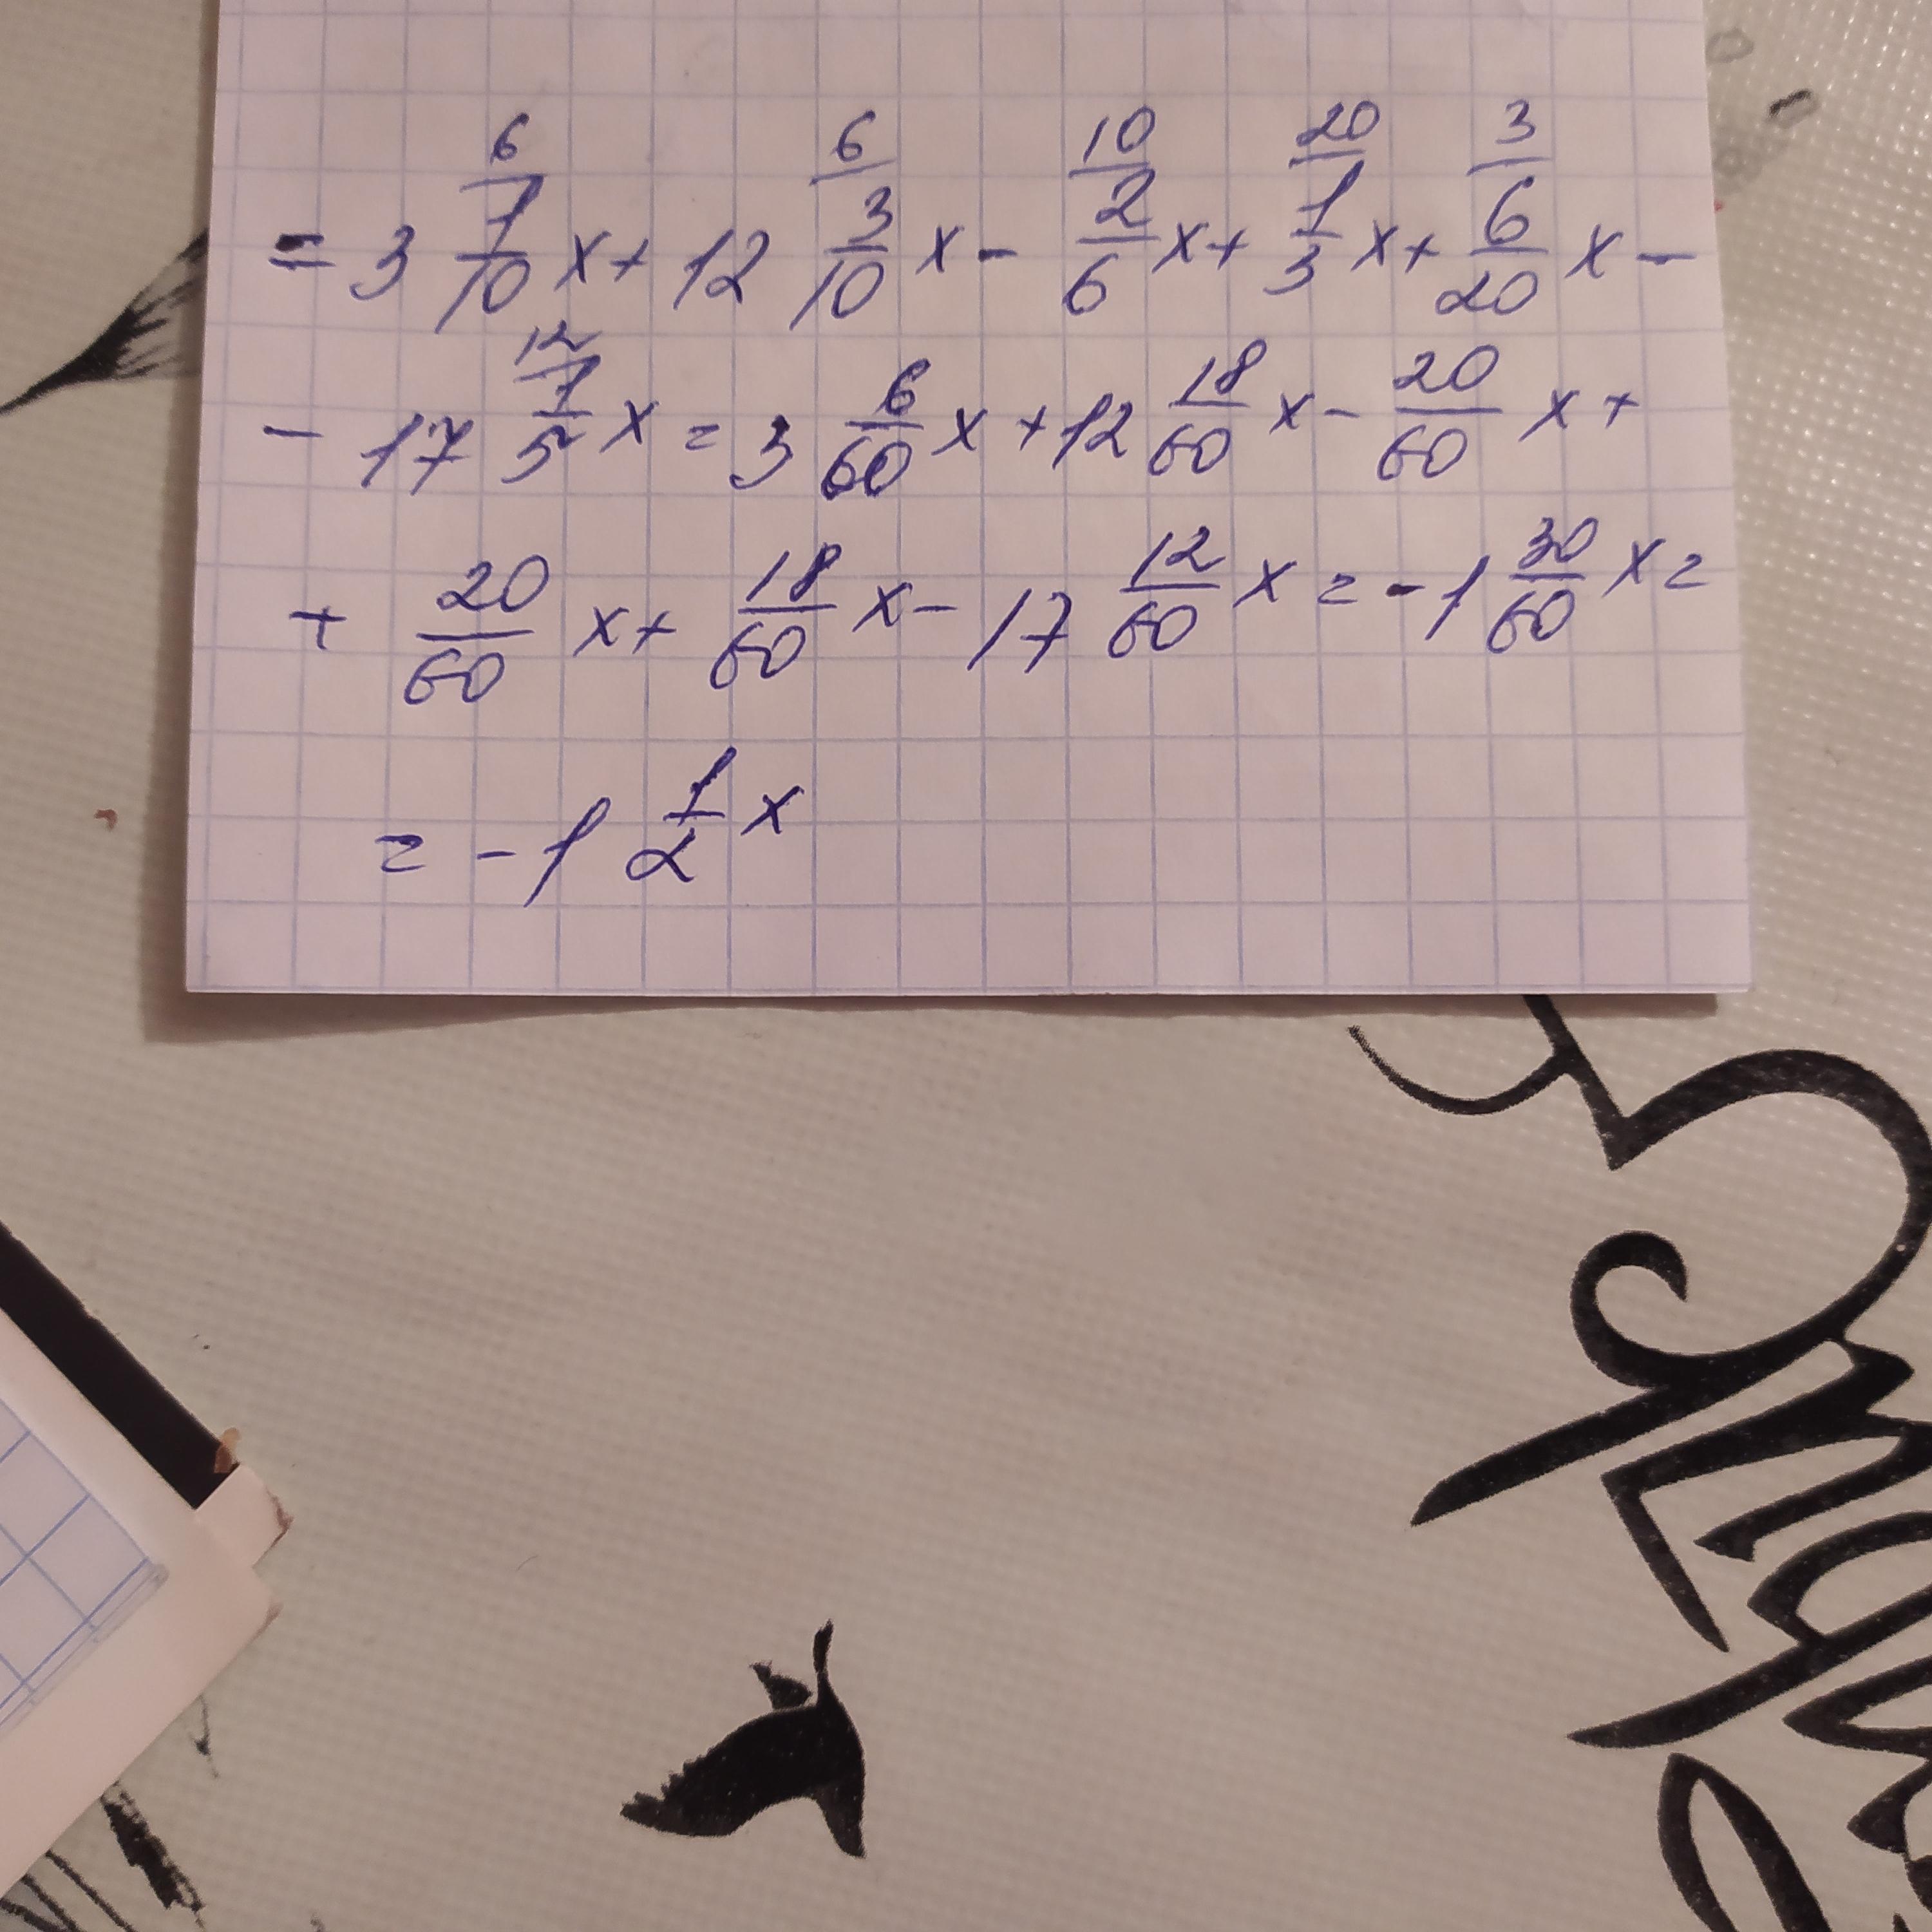 = 3 6/1/10 x + 12 6/3/10 x - 10/2/6 x + 20/1/3 x + 3/6/20 x -
- 17 12/1/5 x = 3 6/60 x + 12 18/60 x - 20/60 x +
+ 20/60 x + 18/60 x - 17 12/60 x = -1 30/60 x =
= -1 1/2 x